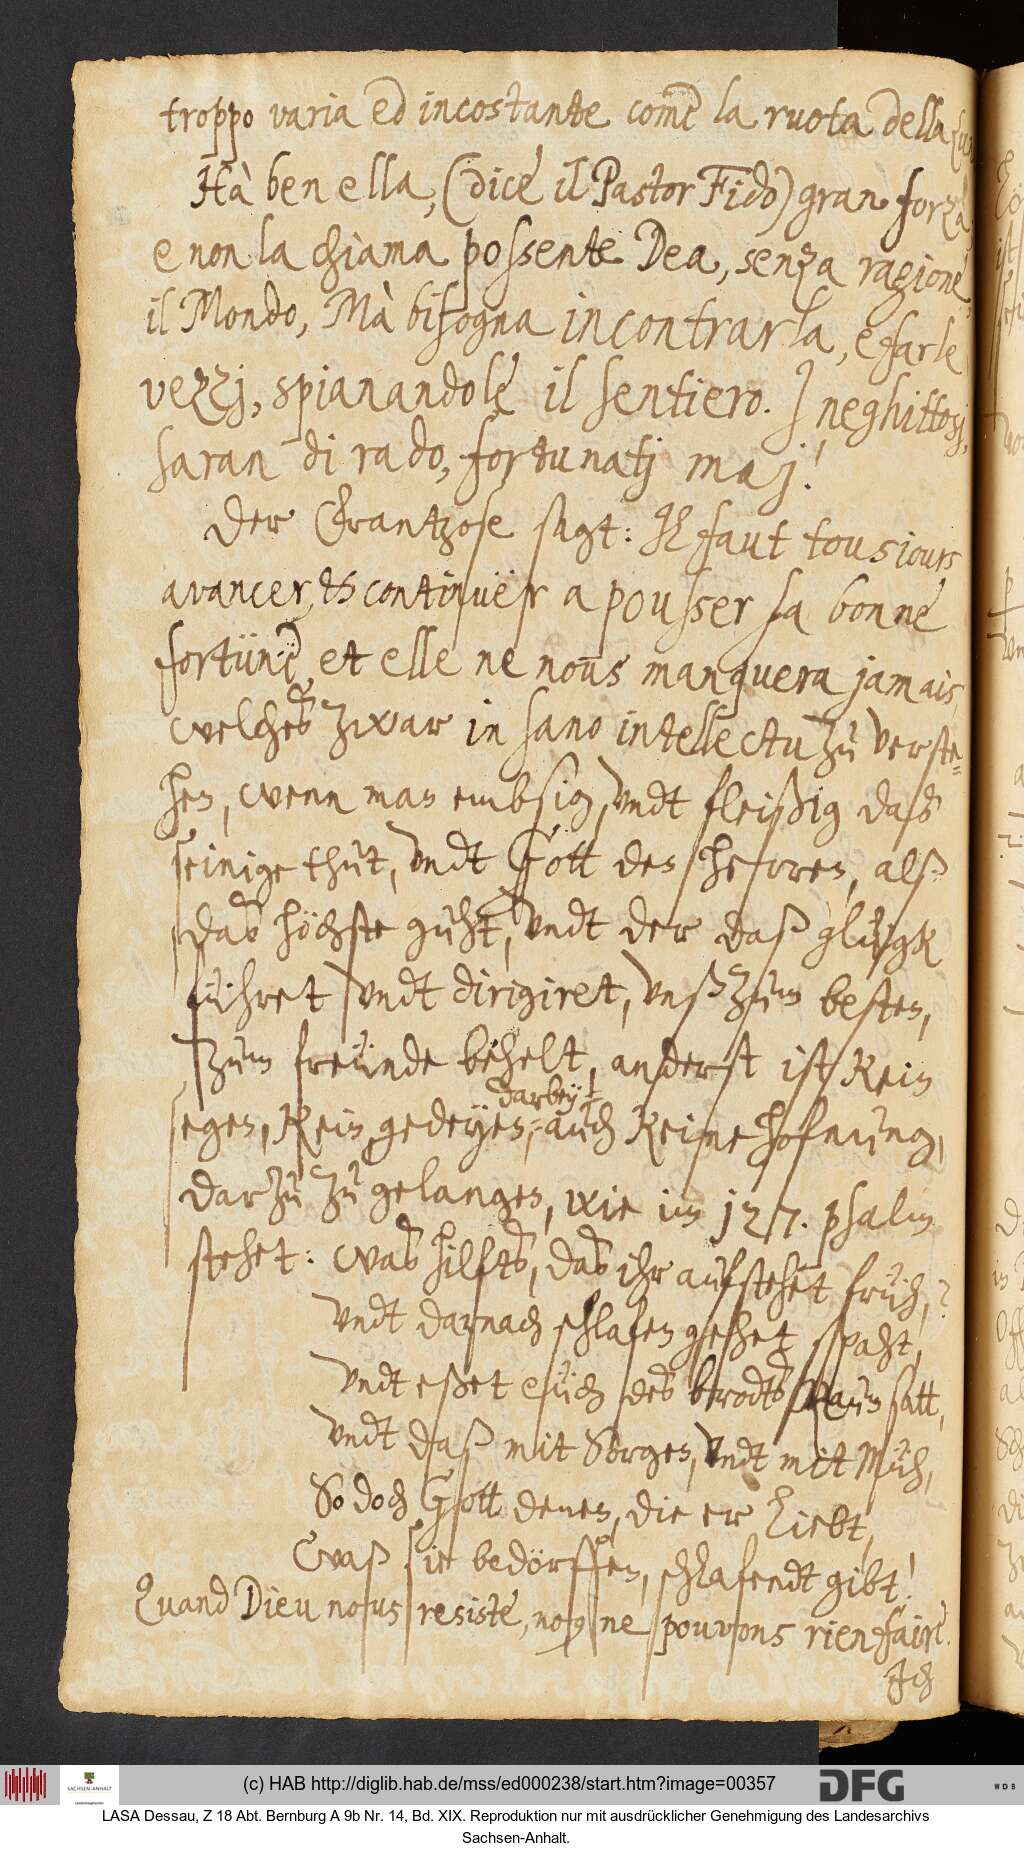 troppo varia ed incostante come la ruota della
Hà ben ella, (dice il Pastor Fido) gran forza
e non la chiama possente Dea, senza ragione,
il Mondo, Mà bisogna incontrarla, e farle
vezzj, spianandole il sentiero. I neghittosj,
saran di rado, fortunatj maj!
Der Frantzose sagt: Il faut tousiours
avancer, & continuër a pousser sa bonne
fortüne, et elle ne nous manquera jamais,
welches zwar in sano intellectu zu verste-
hen, wenn man embsig, undt fleißig daß
seinige thut, undt Gott den herren, alß
das höchste guht, undt der daß glügk
führet undt dirigiret, unß zum besten,
zum freünde behelt, anderst ist kein
segen, kein gedeyen, darbey! auch keine hofnung,
darzu zu gelangen, wie im 127. psalm
stehet: Was hilfts, das ihr aufstehet früh,?
undt darnach schlafen gehet spaht,
undt eßet eüch des brodts kaum satt,
undt daß mit Sorgen, undt mit Müh,
So doch Gott denen, die er liebt,
Waß sie bedörffen, schlafendt gibt!
Quand Dieu nous resiste, nous ne pouvons rien faire.
Ich
(c) HAB http://diglib.hab.de/mss/ed000238/start.htm?image=00357
DFG
WDB
SACHSEN-ANHALT
LASA Dessau, Z 18 Abt. Bernburg A 9b Nr. 14, Bd. XIX. Reproduktion nur mit ausdrücklicher Genehmigung des Landesarchivs
Sachsen-Anhalt.